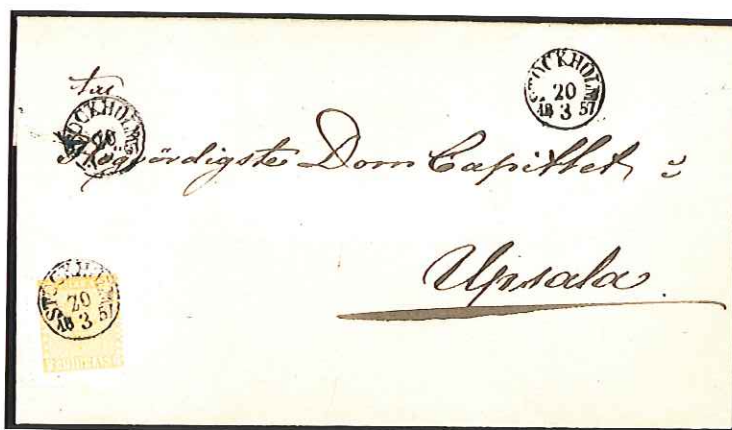 STOCKHOLM
20
3
18 57
STOCKHOLM
20
Högvördigste Dom Capitlet, i
Upsala
STOCKHOLM
20
3
18 57